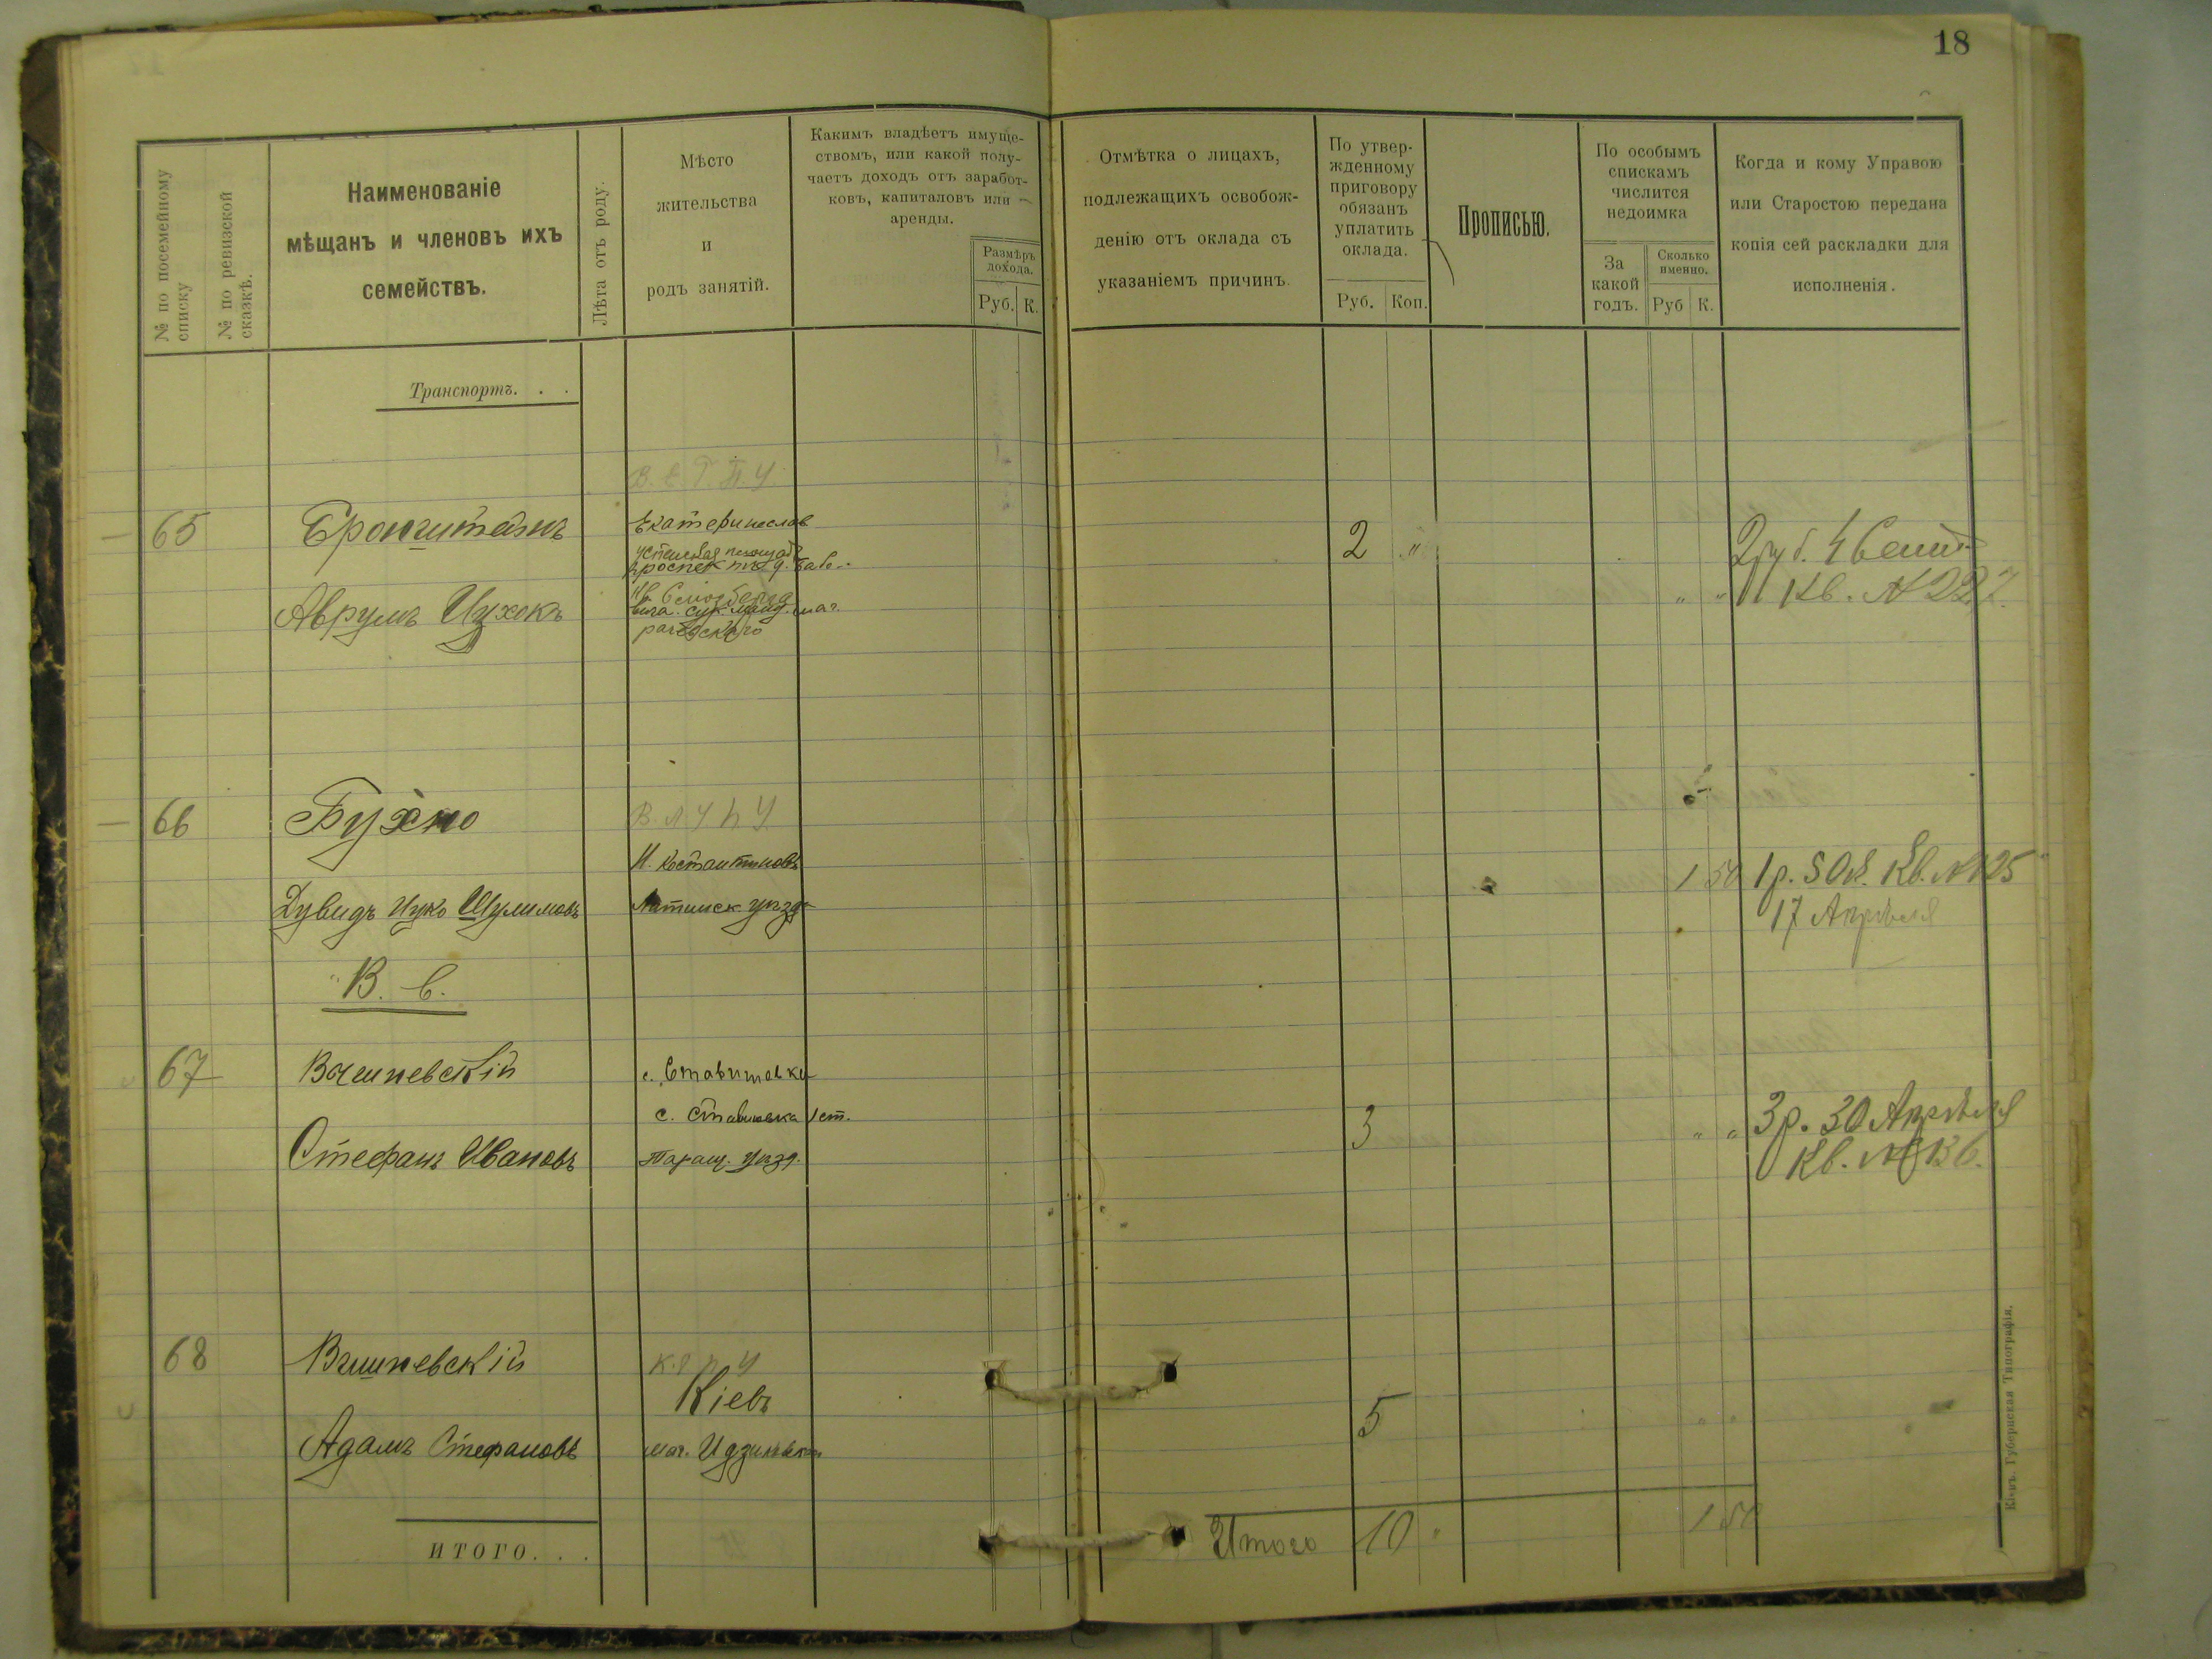 18
№ по посемейному списку
№ по ревизской сказкѣ.
Наименованіе
мѣщанъ и членовъ ихъ
семействъ.
Лѣта отъ роду.
Мѣсто
жительства
и
родъ занятій.
Какимъ владѣетъ имуще-
ствомъ, или какой полу-
чаетъ доходъ отъ заработ-
ковъ, капиталовъ или
аренды.
Размѣръ
дохода.
Руб. К.
Отмѣтка о лицахъ,
подлежащихъ освобож-
денію отъ оклада съ
указаніемъ причинъ
По утвер-
жденному
приговору
обязанъ
уплатить
оклада.
Руб. Коп.
Прописью.
По особымъ
спискамъ
числится
недоимка
За
какой
годъ.
Сколько
именно.
Руб К.
Когда и кому Управою
или Старостою передана
копія сей раскладки для
исполненія.
Транспортъ. . .
В. Е. Г. П. У.
65 Бронштейнъ Екатеринослав 2 " 2 руб. 4 Сент.
проспек
Аврумъ Ицхокъ " " Кв. № 227.
66 Бухно В Л У П У
Н. Костантиновъ 1 50 1 р. 50 к. Кв. № 125
Дувидъ Ицко Шулимовъ Литинск. уѣзда 17 Апрѣля
В. в.
67 Вишневскій с. Ставишовки
с. Ставишовка 1 ст. 3 " " 3 р. 30 Апрѣля
Стефанъ Ивановъ Таращ. уѣзд. Кв. № 136.
68 Вишневскій
Кіевъ 5 " "
Адамъ Стефановъ
ИТОГО. . . Итого 10 " 1 50
Кіевъ. Губернская Типографія.